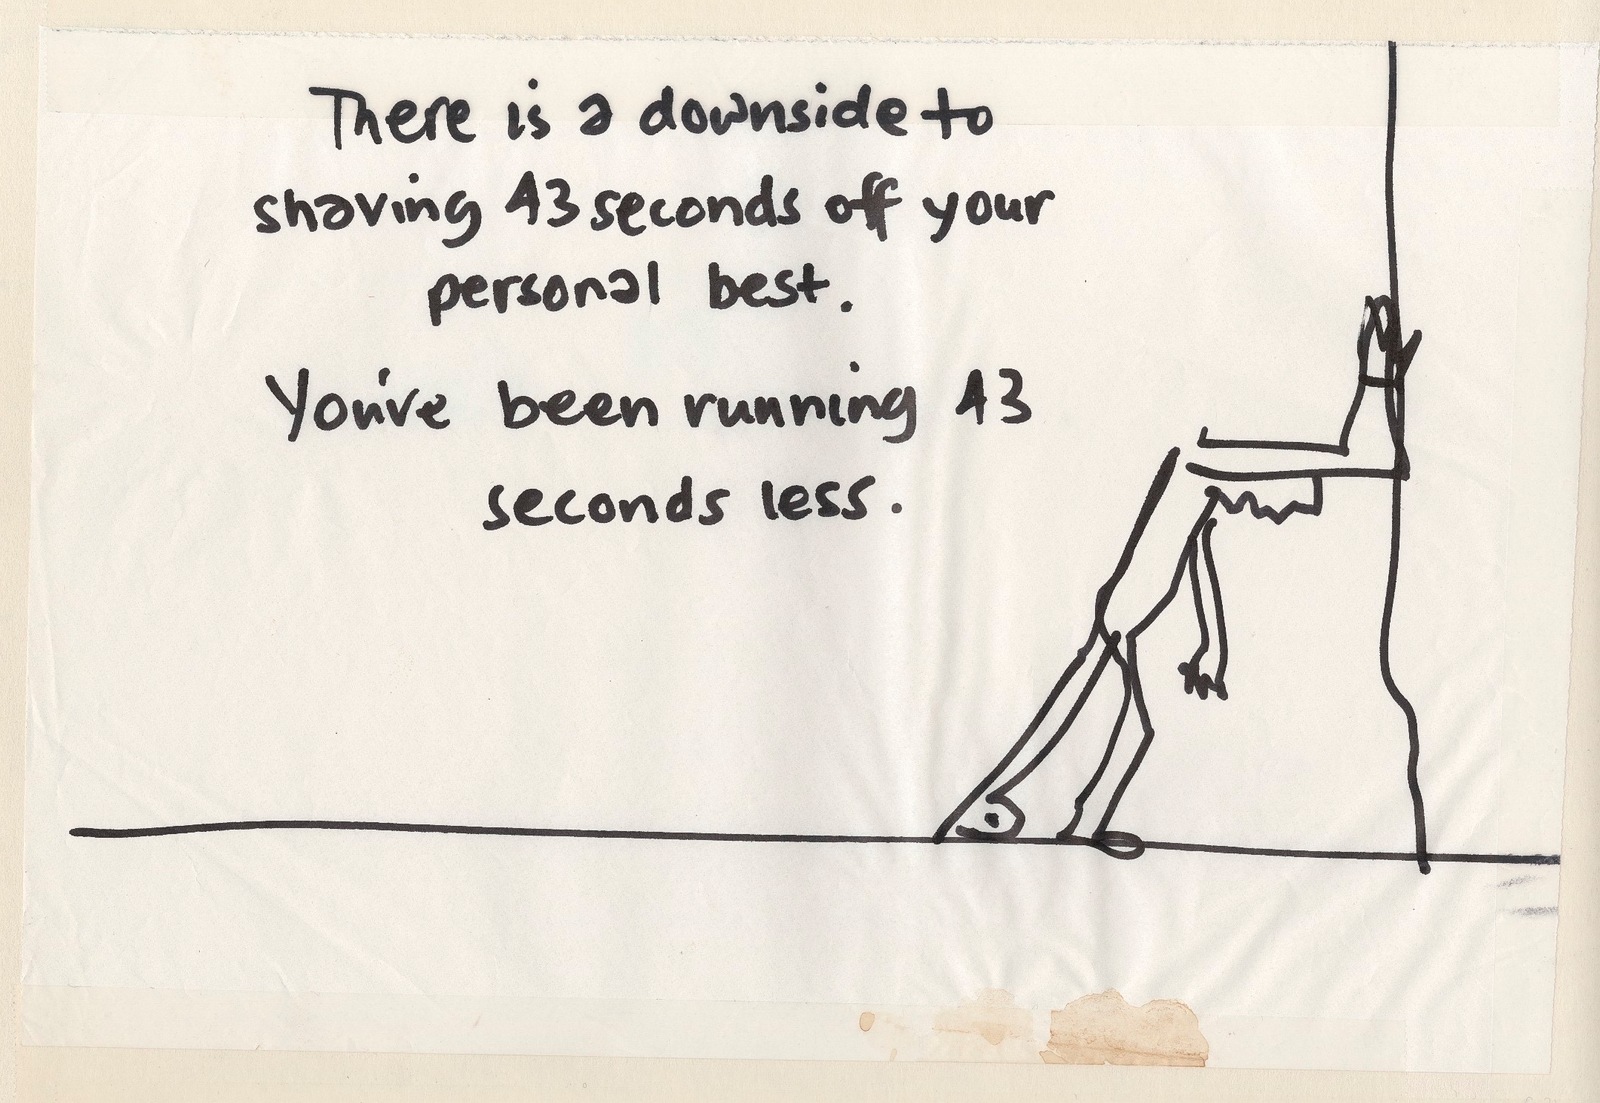 There is a downside to
shaving 43 seconds off your
personal best.
You've been running 43
seconds less.